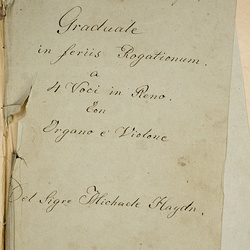 Graduale
in feriis Rogationum.
a
4 Voci in Reno.
Con
Organo e Violone
Del Sigre Michaele Haydn.